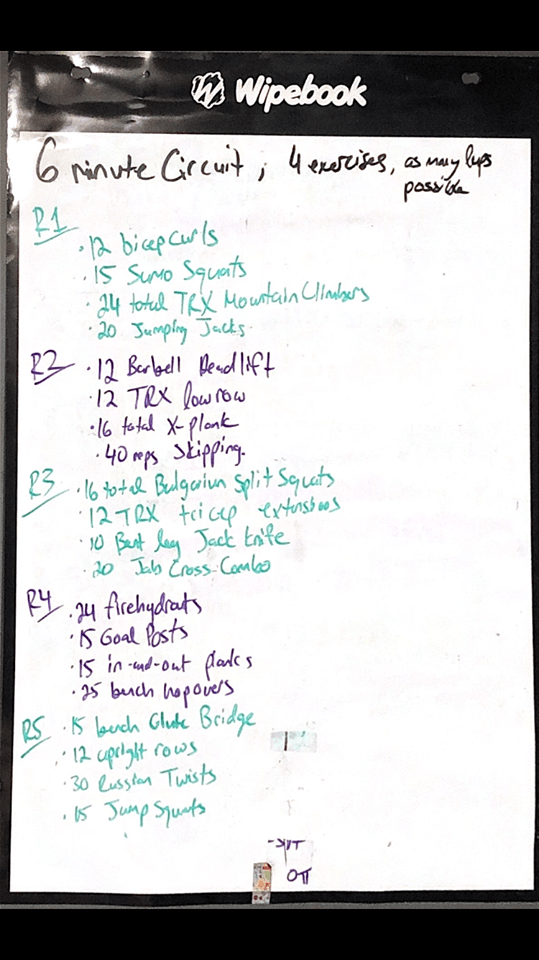 Wipebook
6 minute Circuit, 4 exercises, as many laps
possible
R1
· 12 bicep curls
· 15 Sumo Squats
· 24 total TRX Mountain Climbers
· 20 Jumping Jacks
R2
· 12 Barbell Deadlift
· 12 TRX low row
· 16 total X-plank
· 40 reps Skipping.
R3
· 16 total Bulgarian Split Squats
· 12 TRX tricep extensions
· 10 Bent leg Jack Knife
· 20 Jab Cross Combo
R4
· 24 firehydrants
· 15 Goal Posts
· 15 in-and-out planks
· 25 bench hopovers
R5
· 15 bench Glute Bridge
· 12 upright rows
· 30 Russian Twists
· 15 Jump Squats